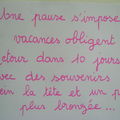 Une pause s'impose
vacances obligent
etour dans 10 jours
vec des souvenirs
ein la tête et un p
plus bronzée...